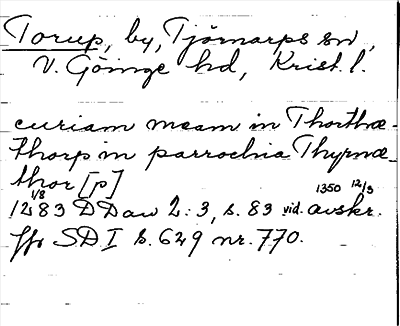 Torup, by, Tjörnarps sn,
V. Göinge hd, Krist. l.
curiam meam in Thorthæ-
thorp in parrochia Thyrnæ-
thor [p]
1/8 1350 12/3
1283 DDan 2:3, s. 83 vid. avskr.
ffr SD I s. 629 nr. 770.